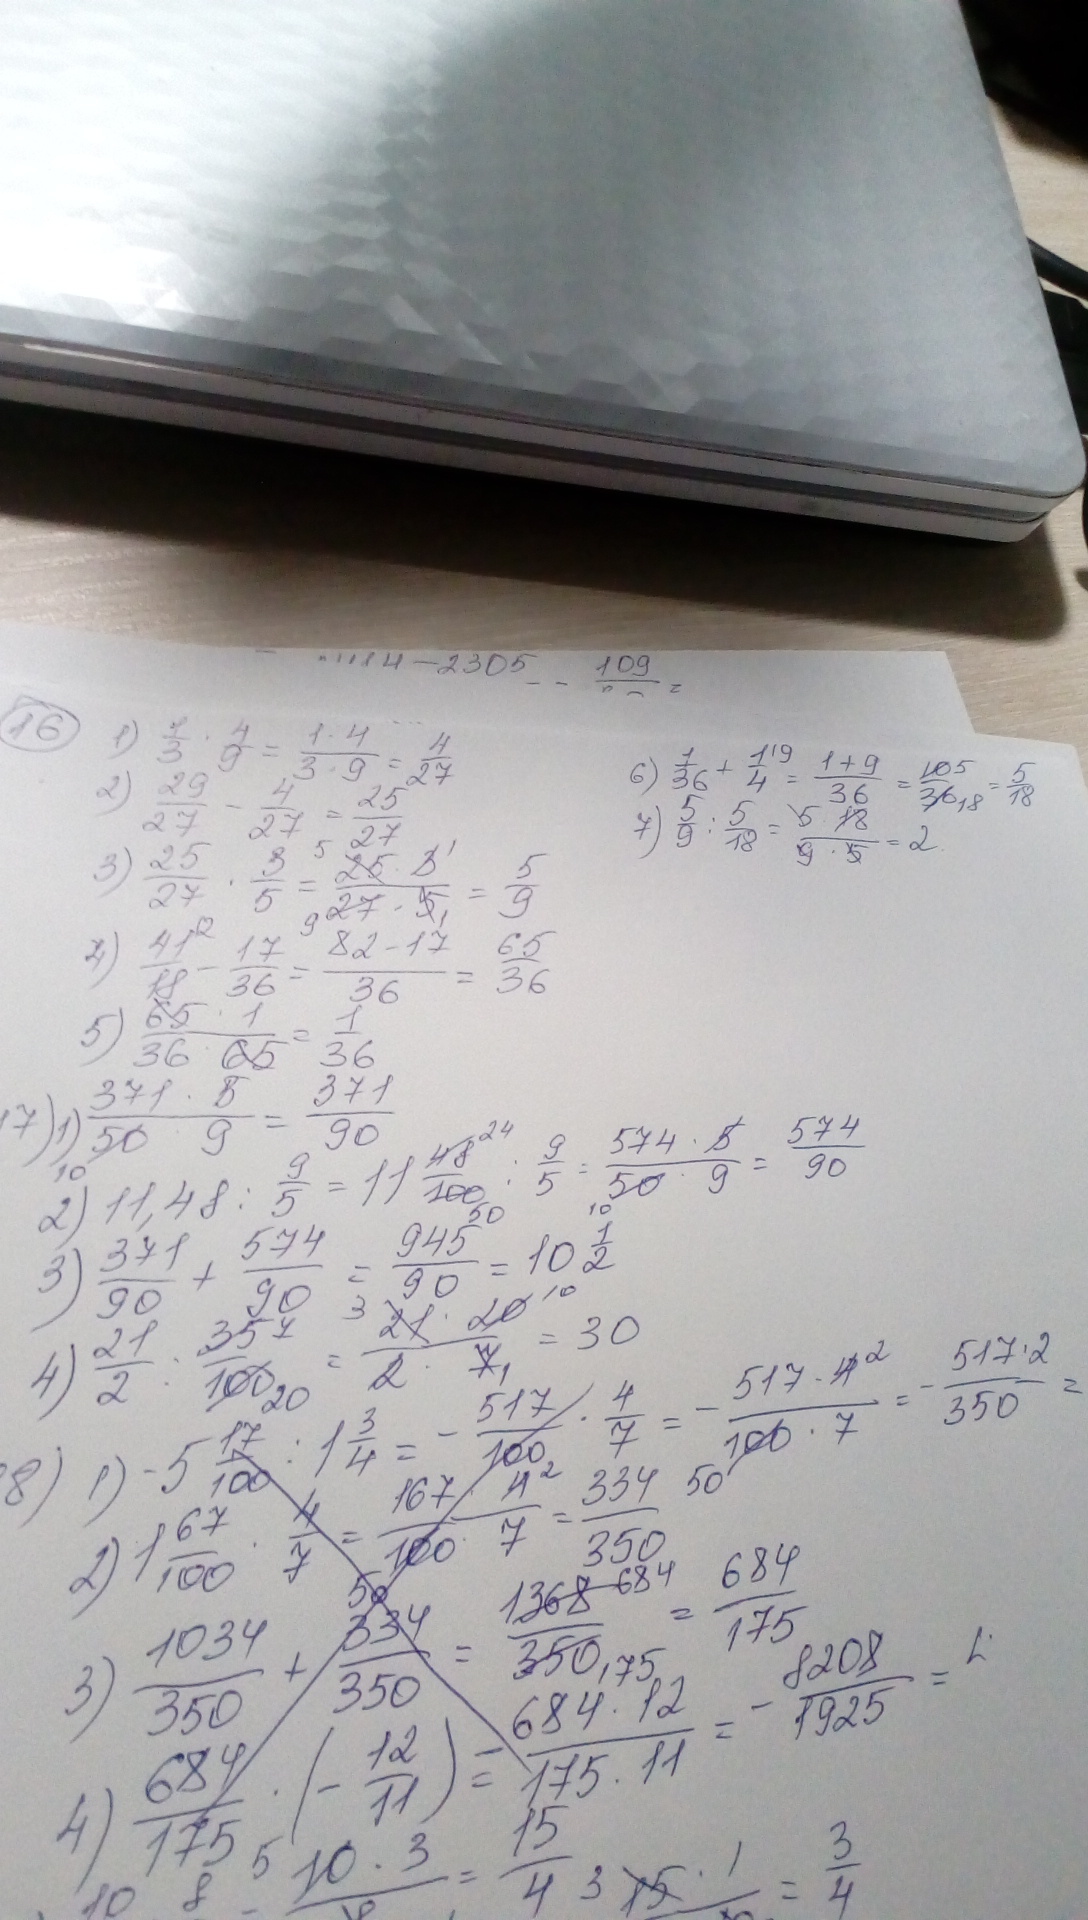 14-2305 -- 109 =
16
1) 1/3 · 4/9 = (1·4)/(3·9) = 4/27
2) 29/27 - 4/27 = 25/27
3) 25/27 · 3/5 = (25·3)/(27·5) = 5/9
4) 41/18 - 17/36 = (82-17)/36 = 65/36
5) (65·1)/(36·65) = 1/36
6) 1/36 + 1/4 = (1+9)/36 = 10/36 = 5/18
7) 5/9 : 5/18 = (5·18)/(9·5) = 2
17) 1) (371·5)/(50·9) = 371/90
2) 11,48 : 9/5 = 11 48/100 : 9/5 = (574·5)/(50·9) = 574/90
3) 371/90 + 574/90 = 945/90 = 10 1/2
4) 21/2 : 35/100 = (21·20)/(2·7) = 30
8) 1) -5 17/100 : 1 3/4 = - 517/100 · 4/7 = - (517·4)/(100·7) = - (517·2)/350 =
2) 1 67/100 · 4/7 = (167·4)/(100·7) = 334/350
3) 1034/350 + 334/350 = 1368/350 = 684/175
4) 684/175 · (- 12/11) = - (684·12)/(175·11) = - 8208/1925 =
10 8 = (10·3)/8 = 15/4
(15·1) = 3/4